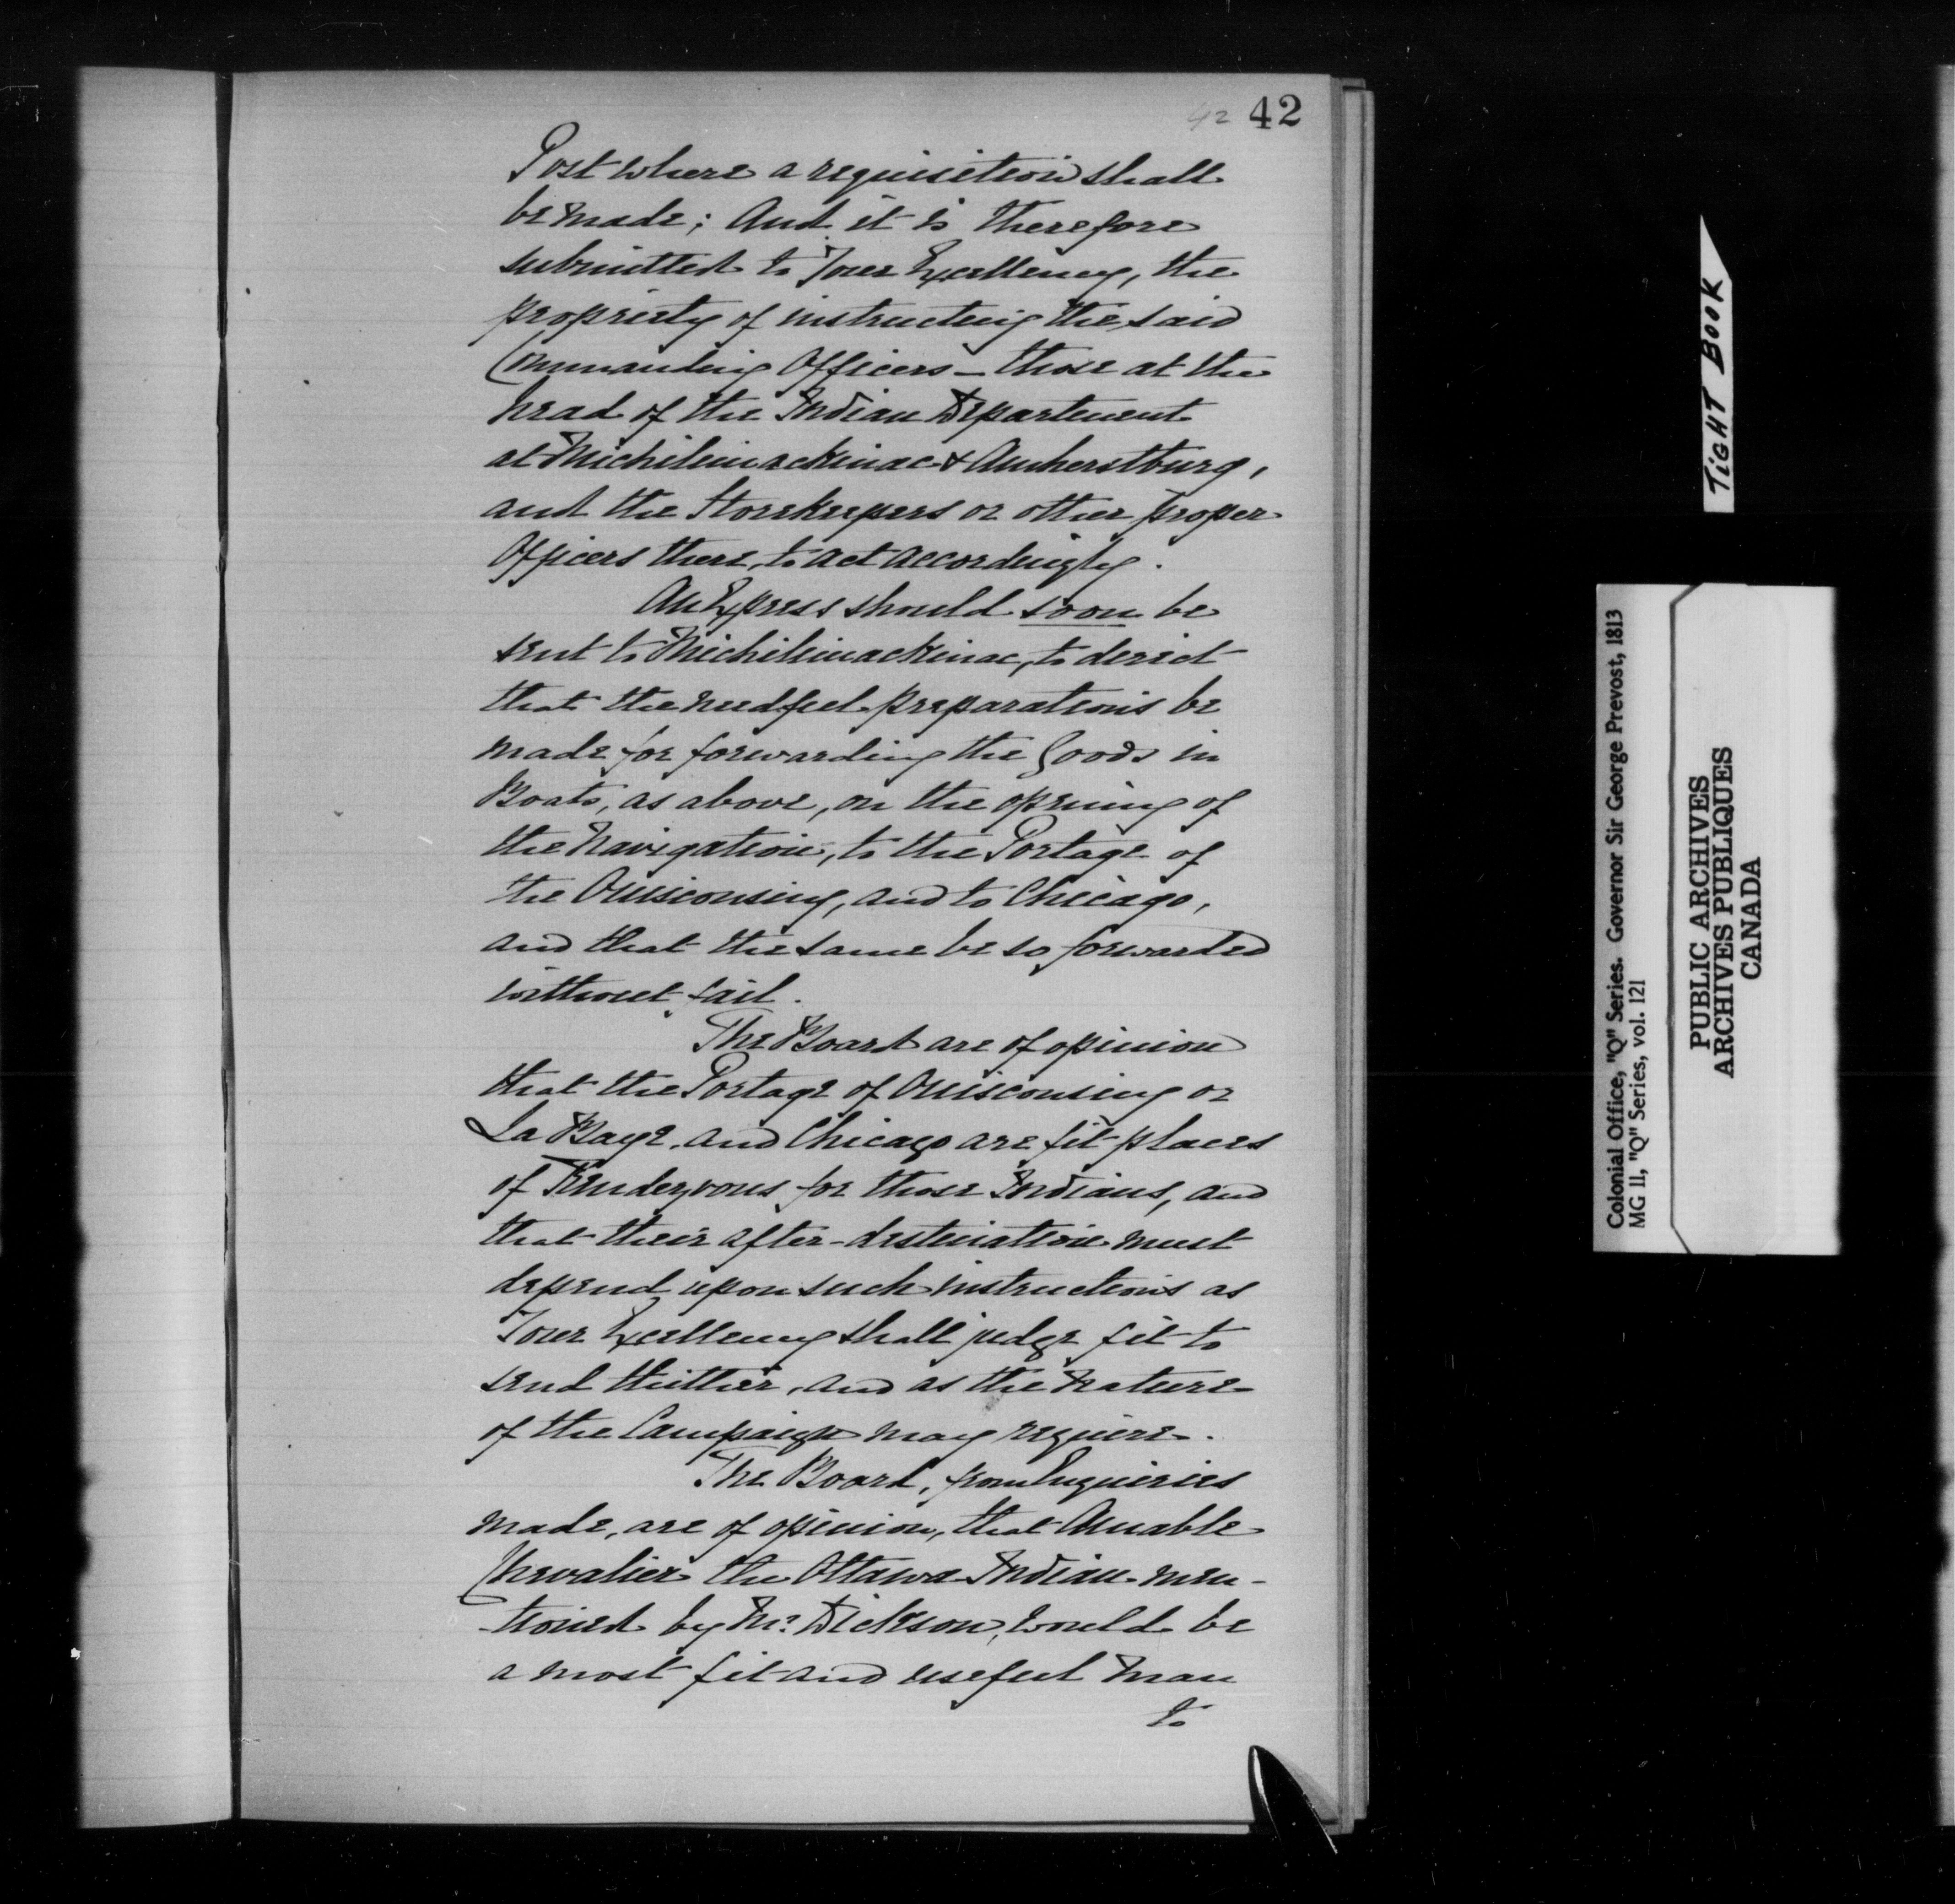 42 42
Post where a requisition shall
be made; And it is therefore
submitted to Your Excellency, the
propriety of instructing the said
Commanding Officers – those at the
head of the Indian Department
at Michilimackinac & Amherstburg,
and the Storekeepers or other proper
Officers there, to act accordingly.
An Express should soon be
sent to Michilimackinac, to direct
that the needful preparations be
made for forwarding the Goods in
Boats, as above, on the opening of
the Navigation, to the Portage of
the Ouisconsing, and to Chicago,
and that the same be so forwarded
without fail.
The Board are of opinion
that the Portage of Ouisconsing or
La Baye, and Chicago are fit places
of Rendezvous for those Indians, and
that their after-destination must
depend upon such instructions as
Your Excellency shall judge fit to
send thither, and as the nature
of the Campaign may require.
The Board, from Enquiries
made, are of opinion, that Amable
Chevalier the Ottawa Indian men-
-tioned by Mr. Dickson, would be
a most fit and useful man
to
TiGHT BOOK
Colonial Office, "Q" Series. Governor Sir George Prevost, 1813
MG 11, "Q" Series, vol. 121
PUBLIC ARCHIVES
ARCHIVES PUBLIQUES
CANADA